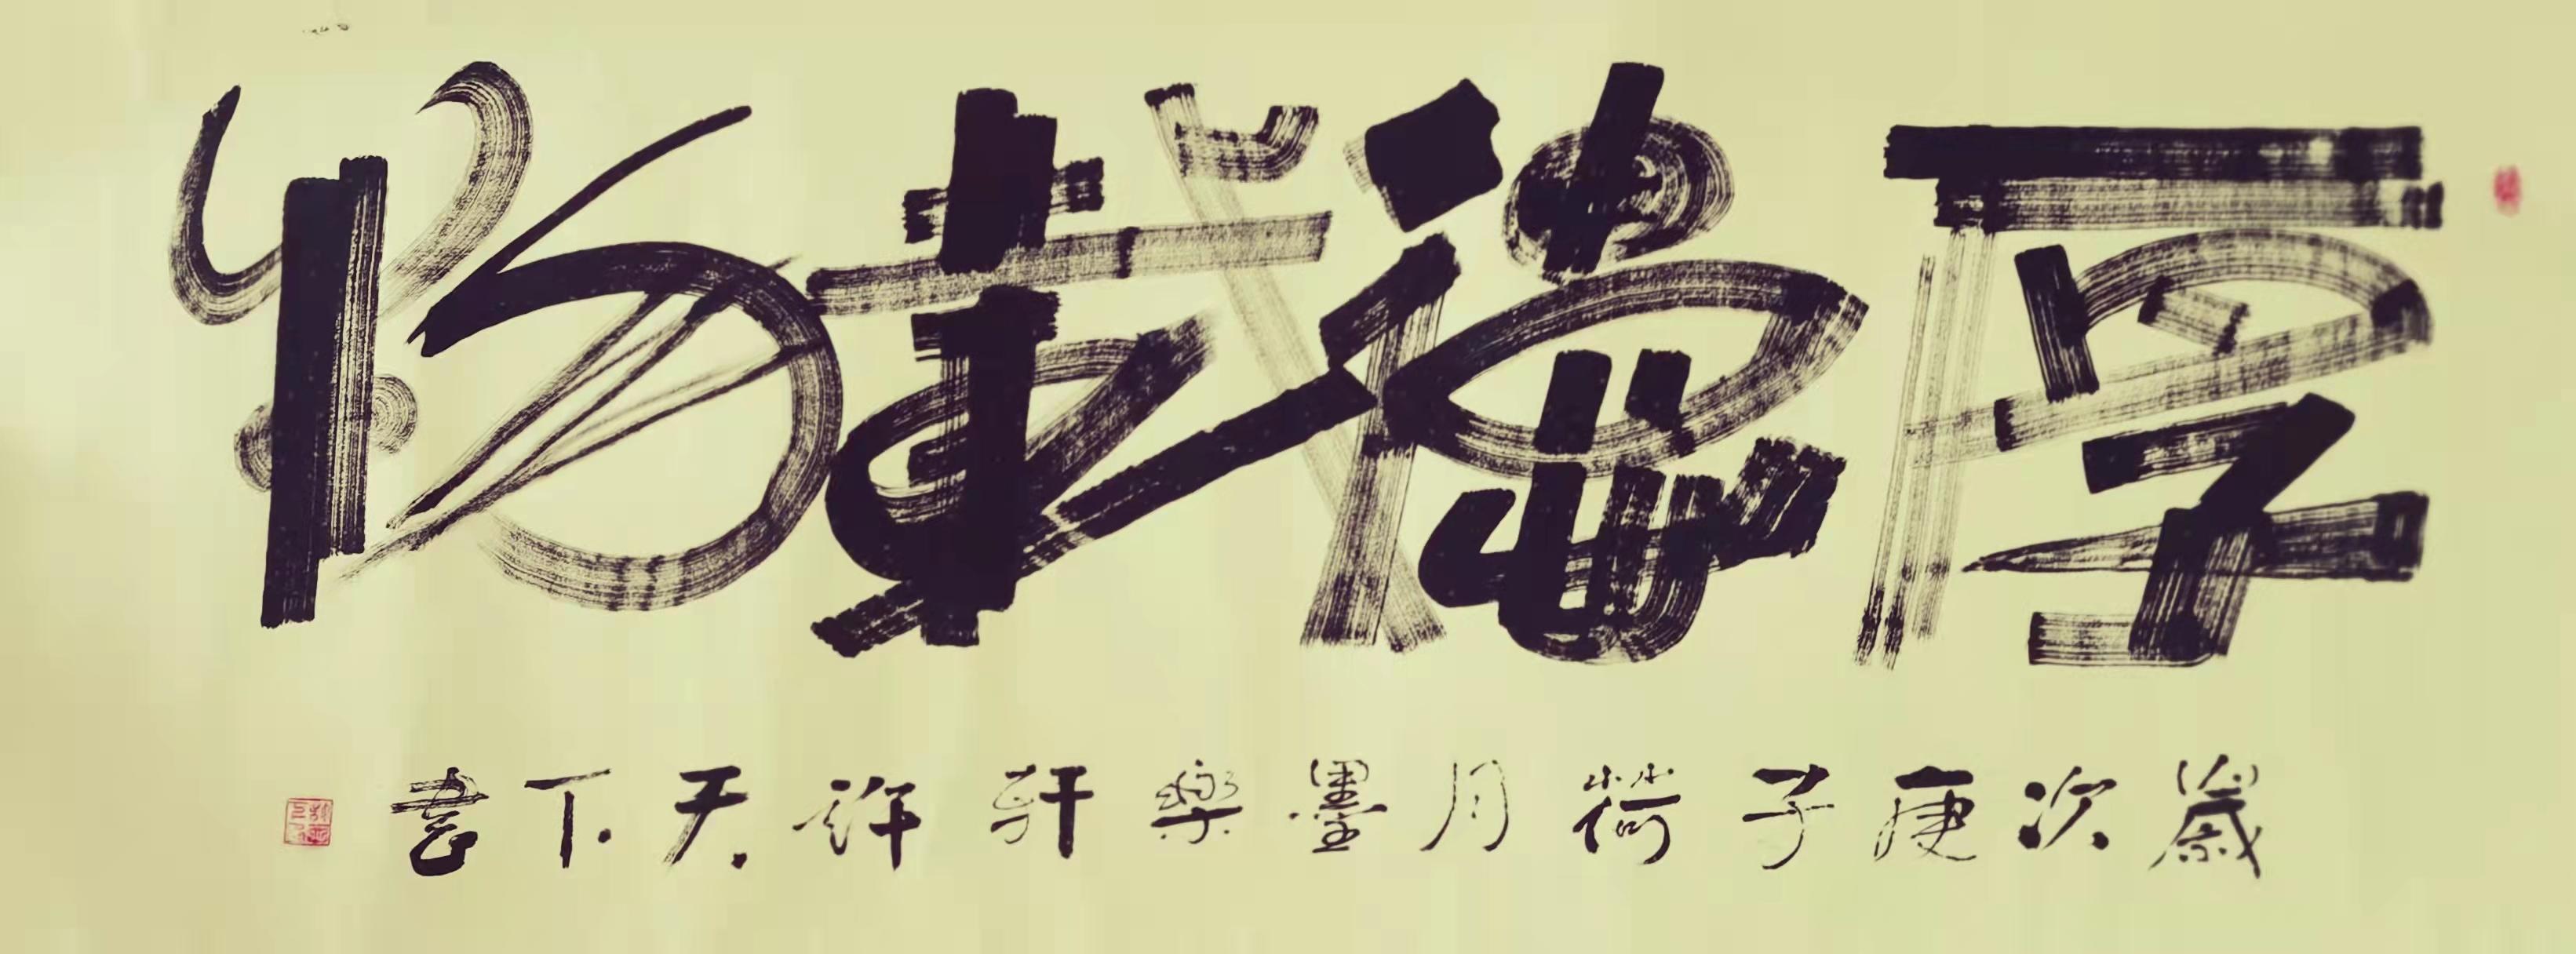 厚德載物
歲次庚子荷月墨樂軒許天下書